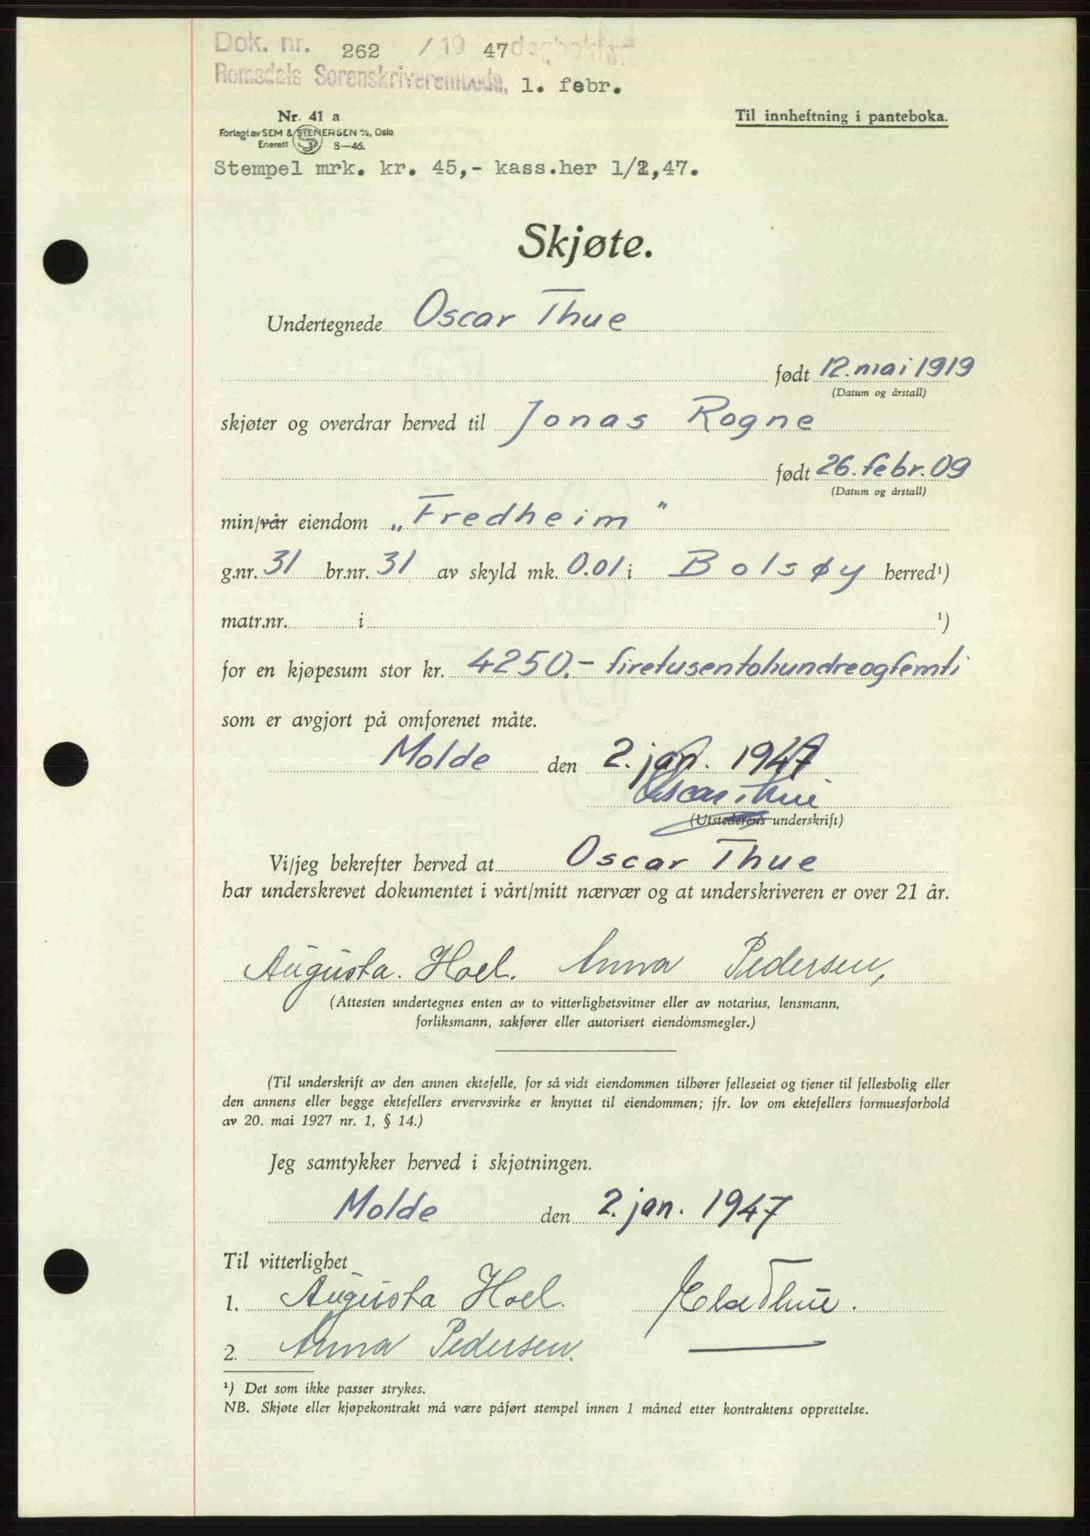 Dok. nr. 262 / 19 47 dagbokført
Romsdals Sorenskriverembede, 1. febr.
Nr. 41 a
Til innheftning i panteboka.
Forlagt av SEM & STENERSEN A/S, Oslo
Enerett 8—46.
Stempel mrk. kr. 45,- kass.her 1/2,47.
Skjøte.
Undertegnede Oscar Thue
født 12. mai 1919
(Datum og årstall)
skjøter og overdrar herved til Jonas Rogne
født 26. febr. 09
(Datum og årstall)
min/vår eiendom „Fredheim"
g.nr. 31 br.nr. 31 av skyld mk. 0.01 i Bolsøy herred¹)
matr.nr. i ¹)
for en kjøpesum stor kr. 4250.- firetusentohundreogfemti
som er avgjort på omforenet måte.
Molde den 2. jan. 1947
Oscar Thue
(Utstederens underskrift)
Vi/jeg bekrefter herved at Oscar Thue
har underskrevet dokumentet i vårt/mitt nærvær og at underskriveren er over 21 år.
Augusta. Hoel. Anna Pedersen,
(Attesten undertegnes enten av to vitterlighetsvitner eller av notarius, lensmann,
forliksmann, sakfører eller autorisert eiendomsmegler.)
(Til underskrift av den annen ektefelle, for så vidt eiendommen tilhører felleseiet og tjener til fellesbolig eller
den annens eller begge ektefellers ervervsvirke er knyttet til eiendommen; jfr. lov om ektefellers formuesforhold
av 20. mai 1927 nr. 1, § 14.)
Jeg samtykker herved i skjøtningen.
Molde den 2. jan. 1947
Til vitterlighet
1. Augusta Hoel. Else Thue.
2. Anna Pedersen.
¹) Det som ikke passer strykes.
NB. Skjøte eller kjøpekontrakt må være påført stempel innen 1 måned etter kontraktens opprettelse.